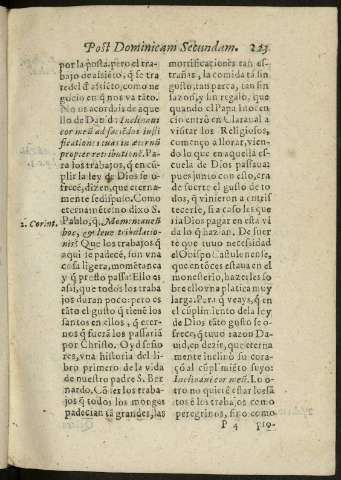 Post Dominicam Secundam. 223
por la posta. pero el tra-
bajo de asiēto, q̄ se tra
re del q̄ asiēto, como ne
gocio en q̄ nos va tāto.
No os acordais de aque
llo de Dauid: Inclinaui
cor meū ad faciēdas iusti
ficationes tuas in æternū
propter retributionē. Pa
ra los trabajos, q̄ en cū-
plir la ley de Dios se o-
frecē, dizen, que eterna-
mente se dispuso. Como
eternamēte? no dixo S.
2. Corint.
Pablo, q̄, Momentaneū
hoc, & leue tribulatio-
nis? Que los trabajos q̄
aqui se padecē, son vna
cosa ligera, momētanea
y q̄ presto passa: Ello es
assi, que todos los traba
jos duran poco: pero es
tāto el gusto q̄ tienē los
santos en ellos, q̄ eter-
nos q̄ fuerā los passariā
por Christo. Oyd seño
res, vna historia del li-
bro primero de la vida
de nuestro padre S. Ber
nardo. Cō ser los traba-
jos q̄ todos los monges
padecian tā grandes, las
mortificaciones tan es-
trañas, la comida tā sin
gusto, tan parca, tan sin
sazon, y sin regalo, que
quando el Papa Inocen
cio entrò en Claraual a
visitar los Religiosos,
començo a llorar, vien-
do lo que en aquella es
cuela de Dios passaua:
pues junto con esto, era
de suerte el gusto de to-
dos, q̄ vinieron a entris
tecerse, si a caso les que
ria Dios pagar en esta vi
da lo q̄ hazian. De suer
te que tuuo necessidad
el Obispo Catalunense,
que entōces estaua en el
monesterio, hazerles so
bre ello vna platica muy
larga. Para q̄ veays, q̄ en
el cūplimiēto de la ley
de Dios tāto gusto se o-
frece, q̄ tuuo razon Da-
uid, en dezir, que eterna
mente inclinò su cora-
çō al cūplimiēto suyo:
Inclinaui cor meū. Lo o-
tro no quierē estar los sā
tos ē los trabajos como
peregrinos, sino como
P 4 pro-